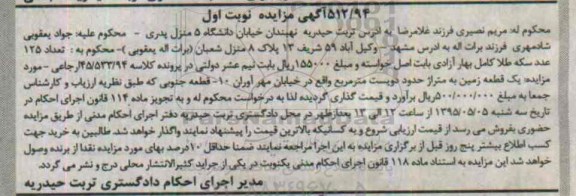 ۵۱۲/۹۴ آگهی مزایده نوبت اول
محکوم له: مریم نصیری فرزند غلامرضا به ادرس تربت حیدریه نهبندان خیابان دانشگاه ۵ منزل پدری - محکوم علیه: جواد یعقوبی
شادمهری فرزند برات اله به ادرس مشهد - وکیل آباد ۵۹ شریف ۱۳ پلاک ۸ منزل شعبان (برات اله یعقوبی)- محکوم به : تعداد ۱۲۵
عدد سکه طلا کامل بهار آزادی بابت اصل خواسته و مبلغ ۱۵۵۰۰۰ریال بابت نیم عشر دولتی در پرونده کلاسه ۴۵/۵۳۳/۹۴ارجاعی - مورد
مزایده: یک قطعه زمین به متراژ حدود دویست مترمربع واقع در خیابان مهر آوران ۱۰- قطعه جنوبی که طبق نظریه ارزیاب و کارشناس
جمعا به مبلغ ۵۰۰/۰۰۰/۰۰۰ریال برآورد و قیمت گذاری گردیده لذا به درخواست محکوم له و به تجویز ماده ۱۱۴ قانون اجرای احکام در
تاریخ سه شنبه ۱۳۹۵/۰۵/۰۵ از ساعت ۱۲ الی ۱۳ بعدازظهر در محل دادگستری تربت حیدریه دفتر اجرای احکام مدنی از طریق مزایده
حضوری بفروش می رسد از قیمت ارزیابی شروع و به کسانیکه بالاترین قیمت را پیشنهاد نمایند واگذار خواهد شد. طالبین به خرید جهت
کسب اطلاع بیشتر پنج روز قبل از برگزاری مزایده به این اجرا مراجعه نمایند ضمنا حداقل ۱۰درصد بهای مورد مزایده نقدا از برنده وصول
خواهد شد این مزایده به استناد ماده ۱۱۸ قانون اجرای احکام مدنی یکنوبت در یکی از جراید کثیرالانتشار محلی درج و نشر می گردد.
مدیر اجرای احکام دادگستری تربت حیدریه